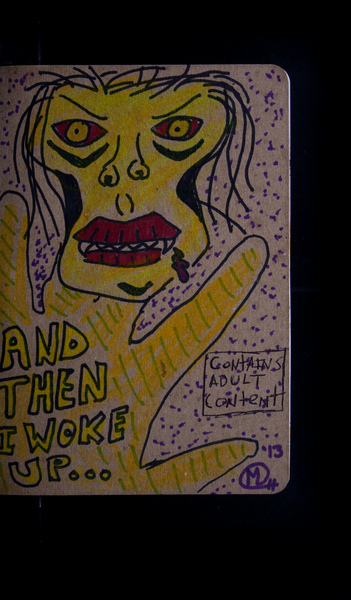 AND
THEN
I WOKE
UP...
CONTAINS
ADULT
Content
'13
M